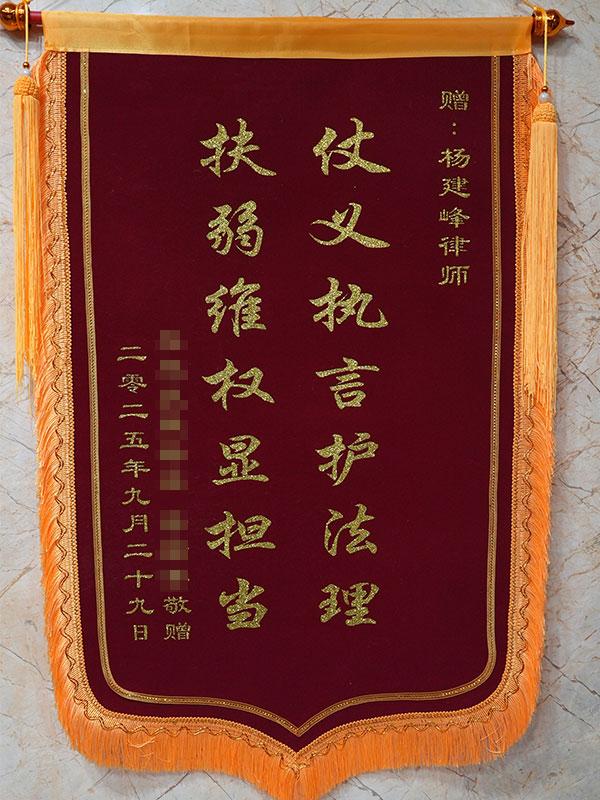 赠：杨建峰律师
仗义执言护法理
扶弱维权显担当
敬赠
二零二五年九月二十九日